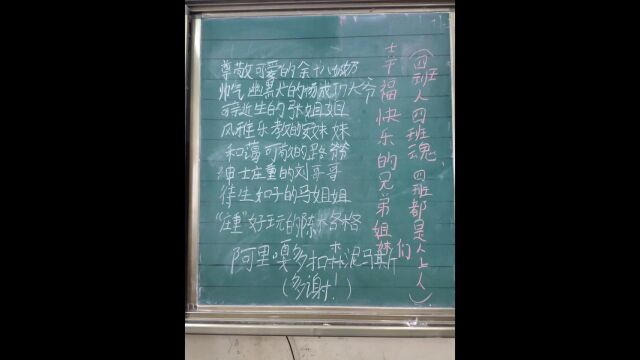 尊敬可爱的余十八奶奶
帅气幽黑犬的杨成功大爷
可亲近生的张姐姐
风雅乐教的安妹妹
和蔼可敬的路爷爷
绅士庄重的刘哥哥
待生如子的马姐姐
“庄重”好玩的陈格格
阿里嘎多扣森泥马斯
(多谢!)
幸福快乐的兄弟姐妹们
(四班人四班魂,四班都是人上人)